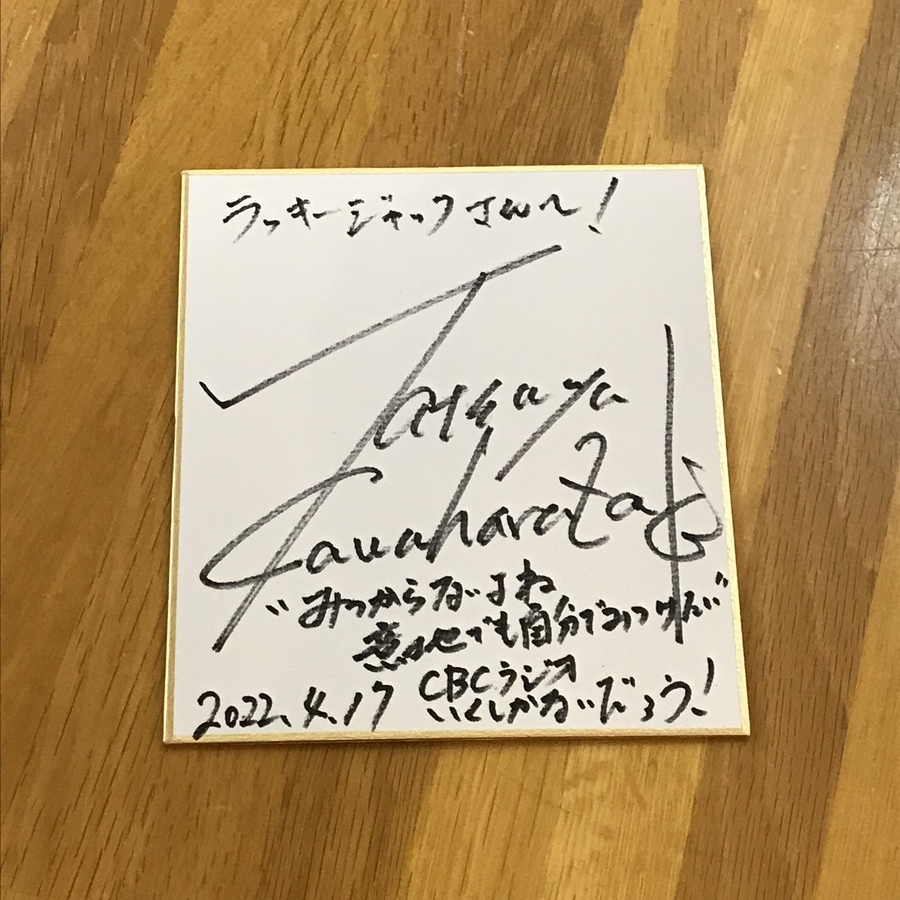 ラッキージャックさんへ!
Tatsuya
Kawaharazaki
"みつからないよね
意地でも自分でみつけたい"
2022.4.17
CBCラジオ
いくしかないだろう!